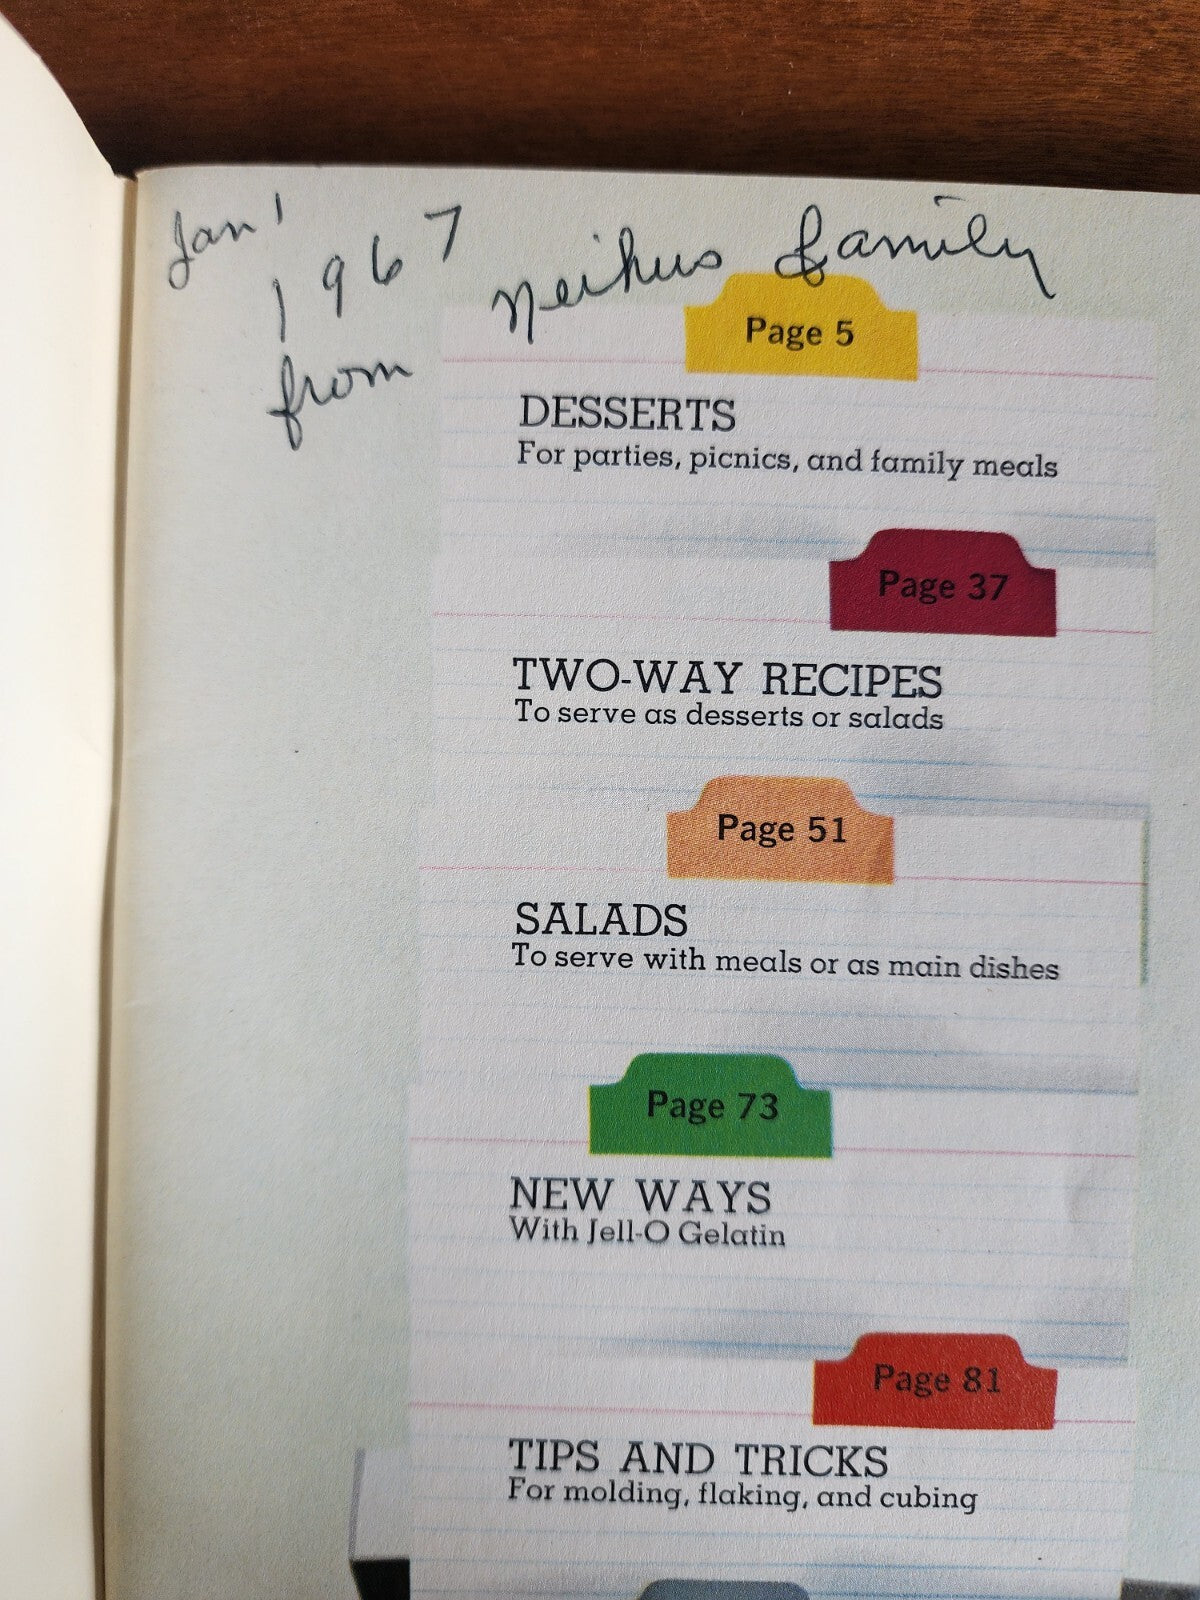 Jan'
1967
from
Neihus family
Page 5
DESSERTS
For parties, picnics, and family meals
Page 37
TWO-WAY RECIPES
To serve as desserts or salads
Page 51
SALADS
To serve with meals or as main dishes
Page 73
NEW WAYS
With Jell-O Gelatin
Page 81
TIPS AND TRICKS
For molding, flaking, and cubing